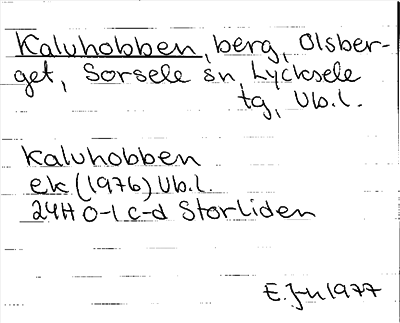 Kaluhobben, berg, Olsber-
get, Sorsele sn, Lycksele
tg, Vb.l.
Kaluhobben
ek (1976) Vb.l.
24H 0-1 c-d Storliden
E. 1977